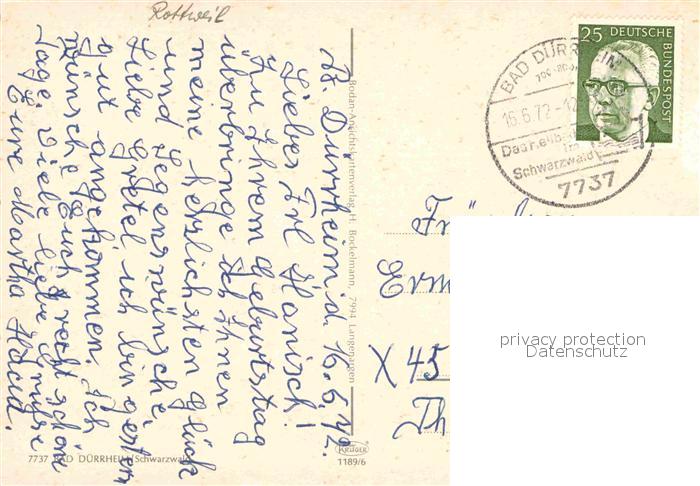 Rottweil
B. Dürrheim d. 16.6.72
Liebes Frl Hanisch!
Zu Ihrem Geburtstag
überbringe ich Ihnen
meine herzlichsten Glück
und Segenswünsche.
Liebe Gretel, ich bin gestern
gut angekommen. Ich
wünsche Euch recht schöne
Tage. Viele liebe Grüße
Eure Martha
7737 BAD DÜRRHEIM/Schwarzwald
Bodan-Ansichtskartenverlag, H. Bockelmann, 7994 Langenargen
KRÜGER
1189/6
25 DEUTSCHE
BUNDESPOST
BAD DÜRRHEIM
16.6.72
im
Schwarzwald
7737
X 45
Th
privacy protection
Datenschutz